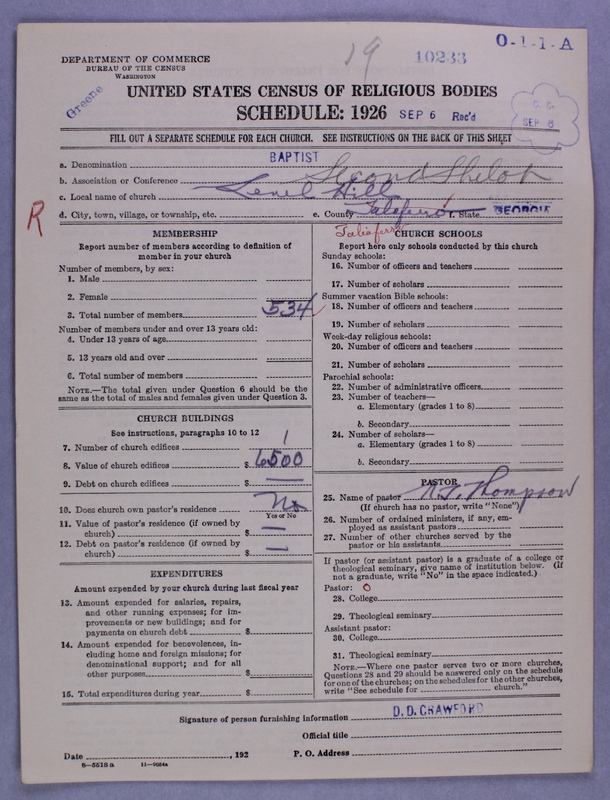 19 10233 O-1-1-A
DEPARTMENT OF COMMERCE
BUREAU OF THE CENSUS
WASHINGTON
Greene
UNITED STATES CENSUS OF RELIGIOUS BODIES
SCHEDULE: 1926 SEP 6 Rec'd
C. C.
SEP 6
FILL OUT A SEPARATE SCHEDULE FOR EACH CHURCH. SEE INSTRUCTIONS ON THE BACK OF THIS SHEET
a. Denomination BAPTIST
b. Association or Conference Second Shiloh
c. Local name of church Hill
d. City, town, village, or township, etc. e. County Taliaferro f. State GEORGIA
R
Taliaferro
MEMBERSHIP
Report number of members according to definition of member in your church
Number of members, by sex:
1. Male
2. Female
3. Total number of members 534
Number of members under and over 13 years old:
4. Under 13 years of age
5. 13 years old and over
6. Total number of members
NOTE.—The total given under Question 6 should be the
same as the total of males and females given under Question 3.
CHURCH BUILDINGS
See instructions, paragraphs 10 to 12
7. Number of church edifices 1
8. Value of church edifices $ 6500
9. Debt on church edifices $ —
10. Does church own pastor's residence No
Yes or No
11. Value of pastor's residence (if owned by
church) $ —
12. Debt on pastor's residence (if owned by
church) $ —
EXPENDITURES
Amount expended by your church during last fiscal year
13. Amount expended for salaries, repairs,
and other running expenses; for im-
provements or new buildings; and for
payments on church debt $
14. Amount expended for benevolences, in-
cluding home and foreign missions; for
denominational support; and for all
other purposes $
15. Total expenditures during year $
CHURCH SCHOOLS
Report here only schools conducted by this church
Sunday schools:
16. Number of officers and teachers
17. Number of scholars
Summer vacation Bible schools:
18. Number of officers and teachers
19. Number of scholars
Week-day religious schools:
20. Number of officers and teachers
21. Number of scholars
Parochial schools:
22. Number of administrative officers
23. Number of teachers—
a. Elementary (grades 1 to 8)
b. Secondary
24. Number of scholars—
a. Elementary (grades 1 to 8)
b. Secondary
PASTOR
25. Name of pastor Thompson
(If church has no pastor, write "None")
26. Number of ordained ministers, if any, em-
ployed as assistant pastors
27. Number of other churches served by the
pastor or his assistants
If pastor (or assistant pastor) is a graduate of a college or
theological seminary, give name of institution below. (If
not a graduate, write "No" in the space indicated.)
Pastor: O
28. College
29. Theological seminary
Assistant pastor:
30. College
31. Theological seminary
NOTE.—Where one pastor serves two or more churches,
Questions 28 and 29 should be answered only on the schedule
for one of the churches; on the schedules for the other churches,
write "See schedule for church."
Signature of person furnishing information D. D. CRAWFORD
Official title
Date , 192 P. O. Address
8—5518 a 11—9034a